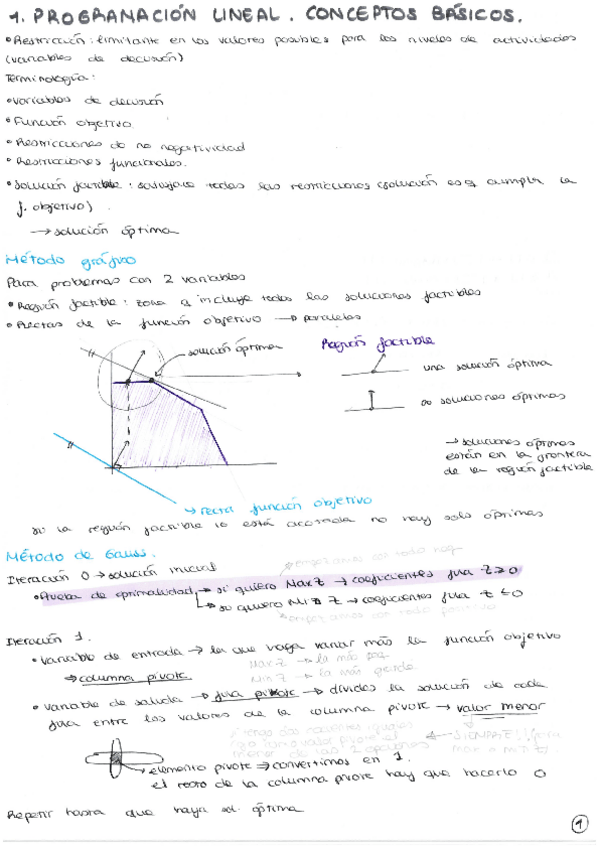 1. PROGRAMACIÓN LINEAL. CONCEPTOS BÁSICOS.
• Restricción: limitante en los valores posibles para los niveles de actividades
(variables de decisión)
Terminología:
• Variables de decisión
• Función objetivo
• Restricciones de no negatividad
• Restricciones funcionales.
• Solución factible: satisface todas las restricciones (solución es q cumpla la
f. objetivo)
→ solución óptima
Método gráfico
Para problemas con 2 variables
• Región factible: zona q incluye todas las soluciones factibles
• Rectas de la función objetivo → paralelas
solución óptima
Región factible
una solución óptima
∞ soluciones óptimas
→ soluciones óptimas
están en la frontera
de la región factible
→ recta función objetivo
si la región factible no está acotada no hay soluc óptimas
Método de Gauss.
empezamos con todo neg
Iteración 0 → solución inicial
• Prueba de optimalidad → si quiero Max Z → coeficientes fila Z ≥ 0
→ si quiero Min Z → coeficientes fila Z ≤ 0
empezamos con todo positivo
Iteración 1.
• Variable de entrada → la que vaya variar más la función objetivo
Max Z → la más peq
⇒ columna pivote
Min Z → la más grande
• Variable de salida → fila pivote → divides la solución de cada
fila entre los valores de la columna pivote → valor menor
menor de las 2 opciones
elemento pivote ⇒ convertimos en 1.
el resto de la columna pivote hay que hacerlo 0
Repetir hasta que haya sol. óptima
1